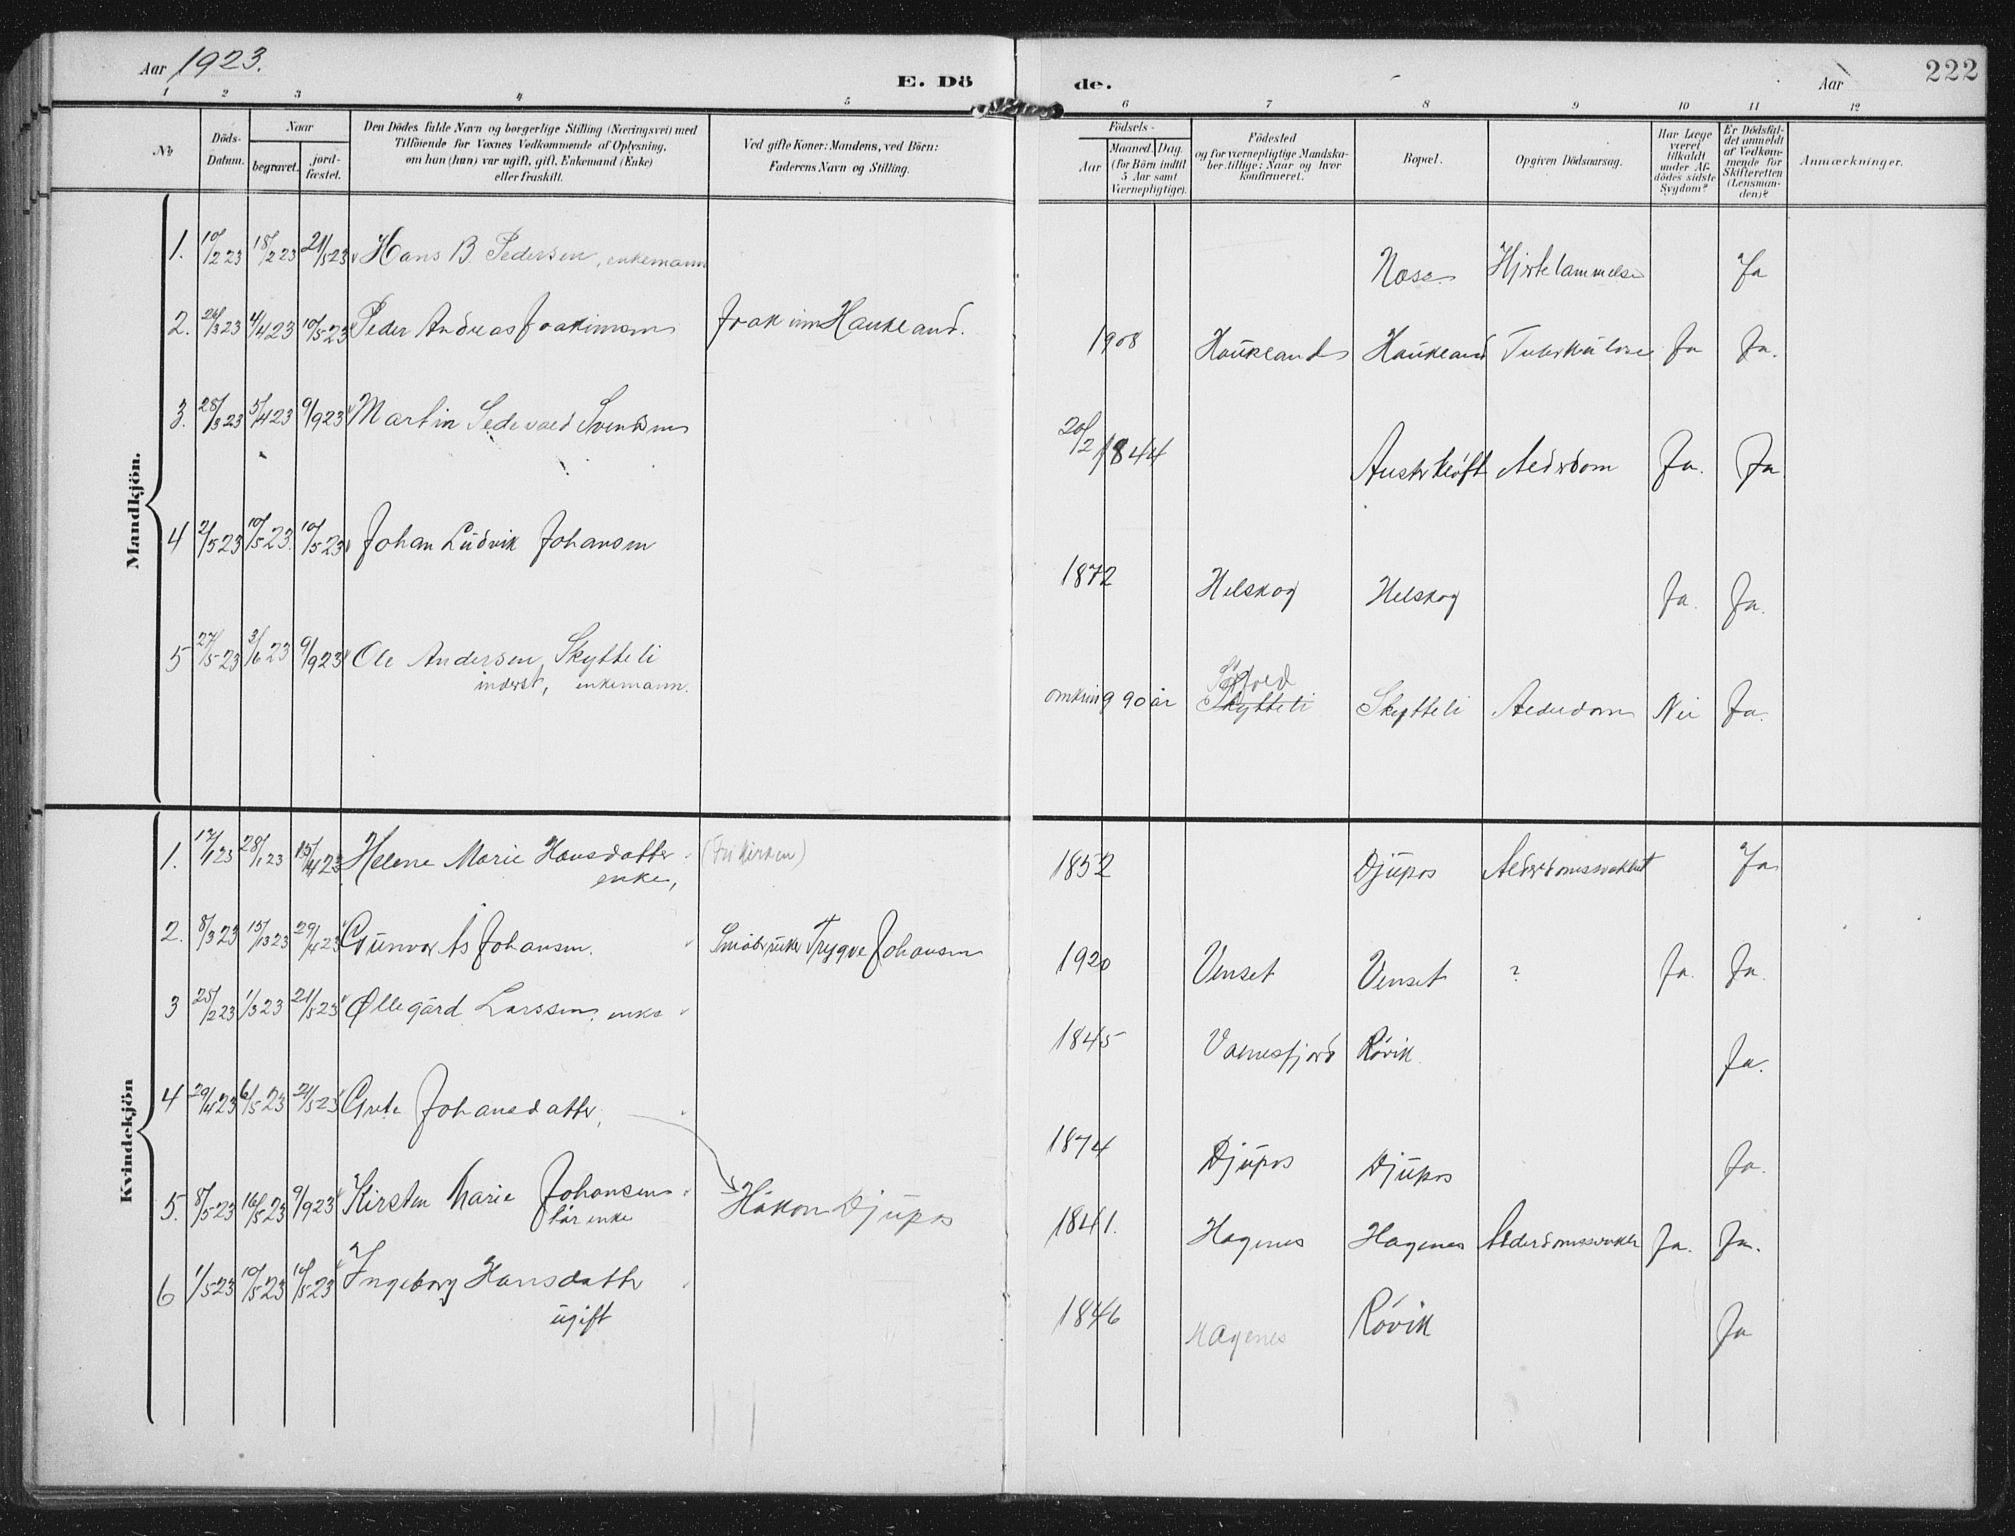 Aar 1923.
E. Dö
de.
Aar
222
1 2 3 4 5 6 7 8 9 10 11 12
No
Döds-Datum.
Naar
begravet.
jord-fæstet.
Den Dödes fulde Navn og borgerlige Stilling (Næringsvei) med
Tilföiende for Voxnes Vedkommende af Oplysning,
om han (hun) var ugift, gift, Enkemand (Enke)
eller fraskilt.
Ved gifte Koner: Mandens, ved Börn:
Faderens Navn og Stilling.
Födsels-
Aar
Maaned. Dag.
(for Börn indtil
5 Aar samt
Værnepligtige).
Födested
og for værnepligtige Mandska-
ber tillige: Naar og hvor
konfirmeret.
Bopæl.
Opgiven Dödsaarsag.
Har Læge
været
tilkaldt
under Af-
dödes sidste
Sygdom?
Er Dödsfal-
det anmeldt
af Vedkom-
mende for
Skifteretten
(Lensman-
den)?
Anmærkninger.
Mandkjön.
1. 10/2 23 18/2 23 21/5 23 Hans B Pedersen, enkemann Næss Hjertelammelse Ja
2. 26/3 23 4/4 23 10/5 23 Peder Andreas Joakimsen Joakim Haukland. 1908 Haukland Haukland Tuberkulose Ja Ja.
3. 28/3 23 5/4 23 9/9 23 Martin Sedevald Svendsen 20/2 1844 Austerkløft Alderdom Ja. Ja
4 2/5 23 10/5 23. 10/5 23 Johan Ludvik Johansen 1872 Helskog Helskog Ja. Ja.
5 27/5 23 3/6 23 9/9 23 Ole Andersen, Skytteli
inderst, enkemann.
omkring 90 år Skytteli Skytteli Alderdom Nei Ja.
Kvindekjön
1. 17/1 23 28/1 23 15/4 23 Helene Marie Hansdatter (Frikirken)
enke,
1852 Djupos Alderdomssvakhet Ja
2. 8/3 23 15/3 23 29/4 23 Gunvor Ås Johansen. Småbruker Trygve Johansen 1920 Venset Venset ? Ja. Ja.
3 25/2 23 1/3 23 21/5 23 Øllegård Larssen, enke 1845 Valnesfjord Røvik Ja.
4 29/4 23 6/5 23 21/5 23 Grete Johansdatter, 1874 Djupos Djupos Ja.
5. 8/5 23 16/5 23 9/9 23 Kirsten Marie Johansen Håkon Djupos
får enke
1841. Hagenes Hagenes Alderdomssvakhet Ja. Ja.
6 1/5 23 10/5 23 10/5 23 Ingeborg Hansdatter
ugift
1846 Hagenes Røvik Ja